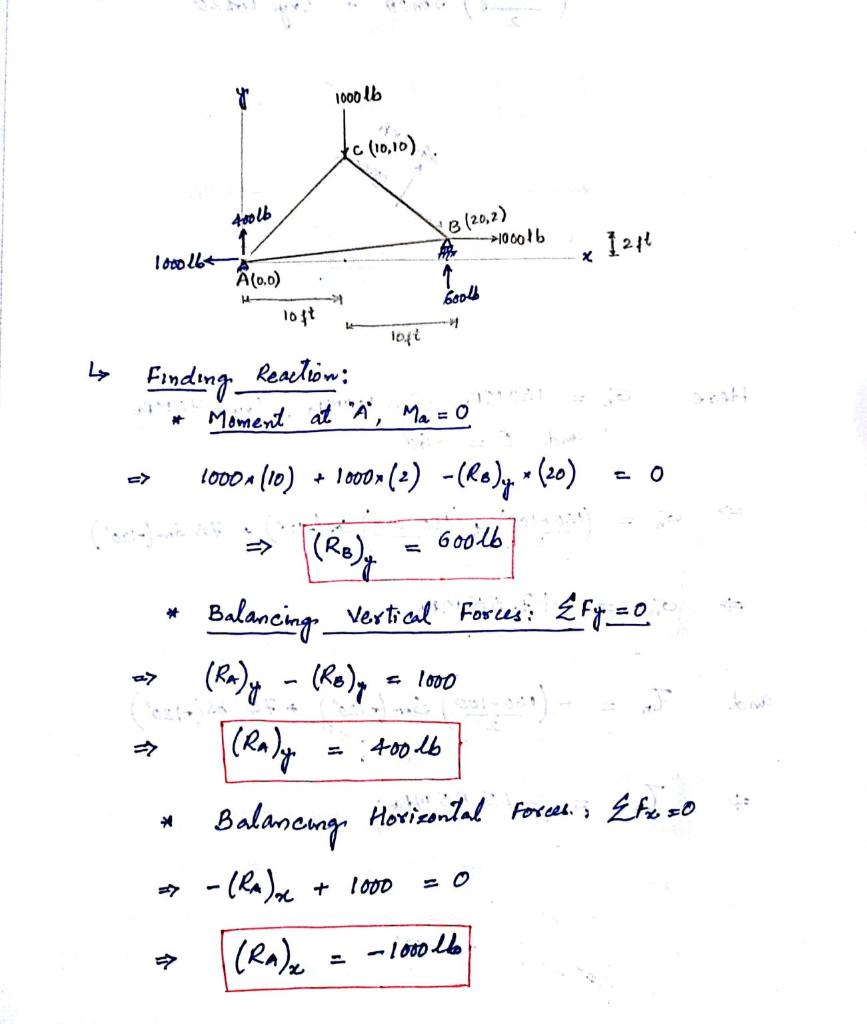 y
1000 lb
C (10,10)
400lb
B (20,2)
1000lb
1000lb
x
2ft
A(0,0)
600lb
10ft
10ft
↳ Finding Reaction:
* Moment at "A", Ma = 0
=> 1000 × (10) + 1000 × (2) - (RB)y × (20) = 0
=> (RB)y = 600lb
* Balancing Vertical Forces: ΣFy = 0
=> (RA)y - (RB)y = 1000
=> (RA)y = 400 lb
* Balancing Horizontal Forces: ΣFx = 0
=> -(RA)x + 1000 = 0
=> (RA)x = -1000 lb